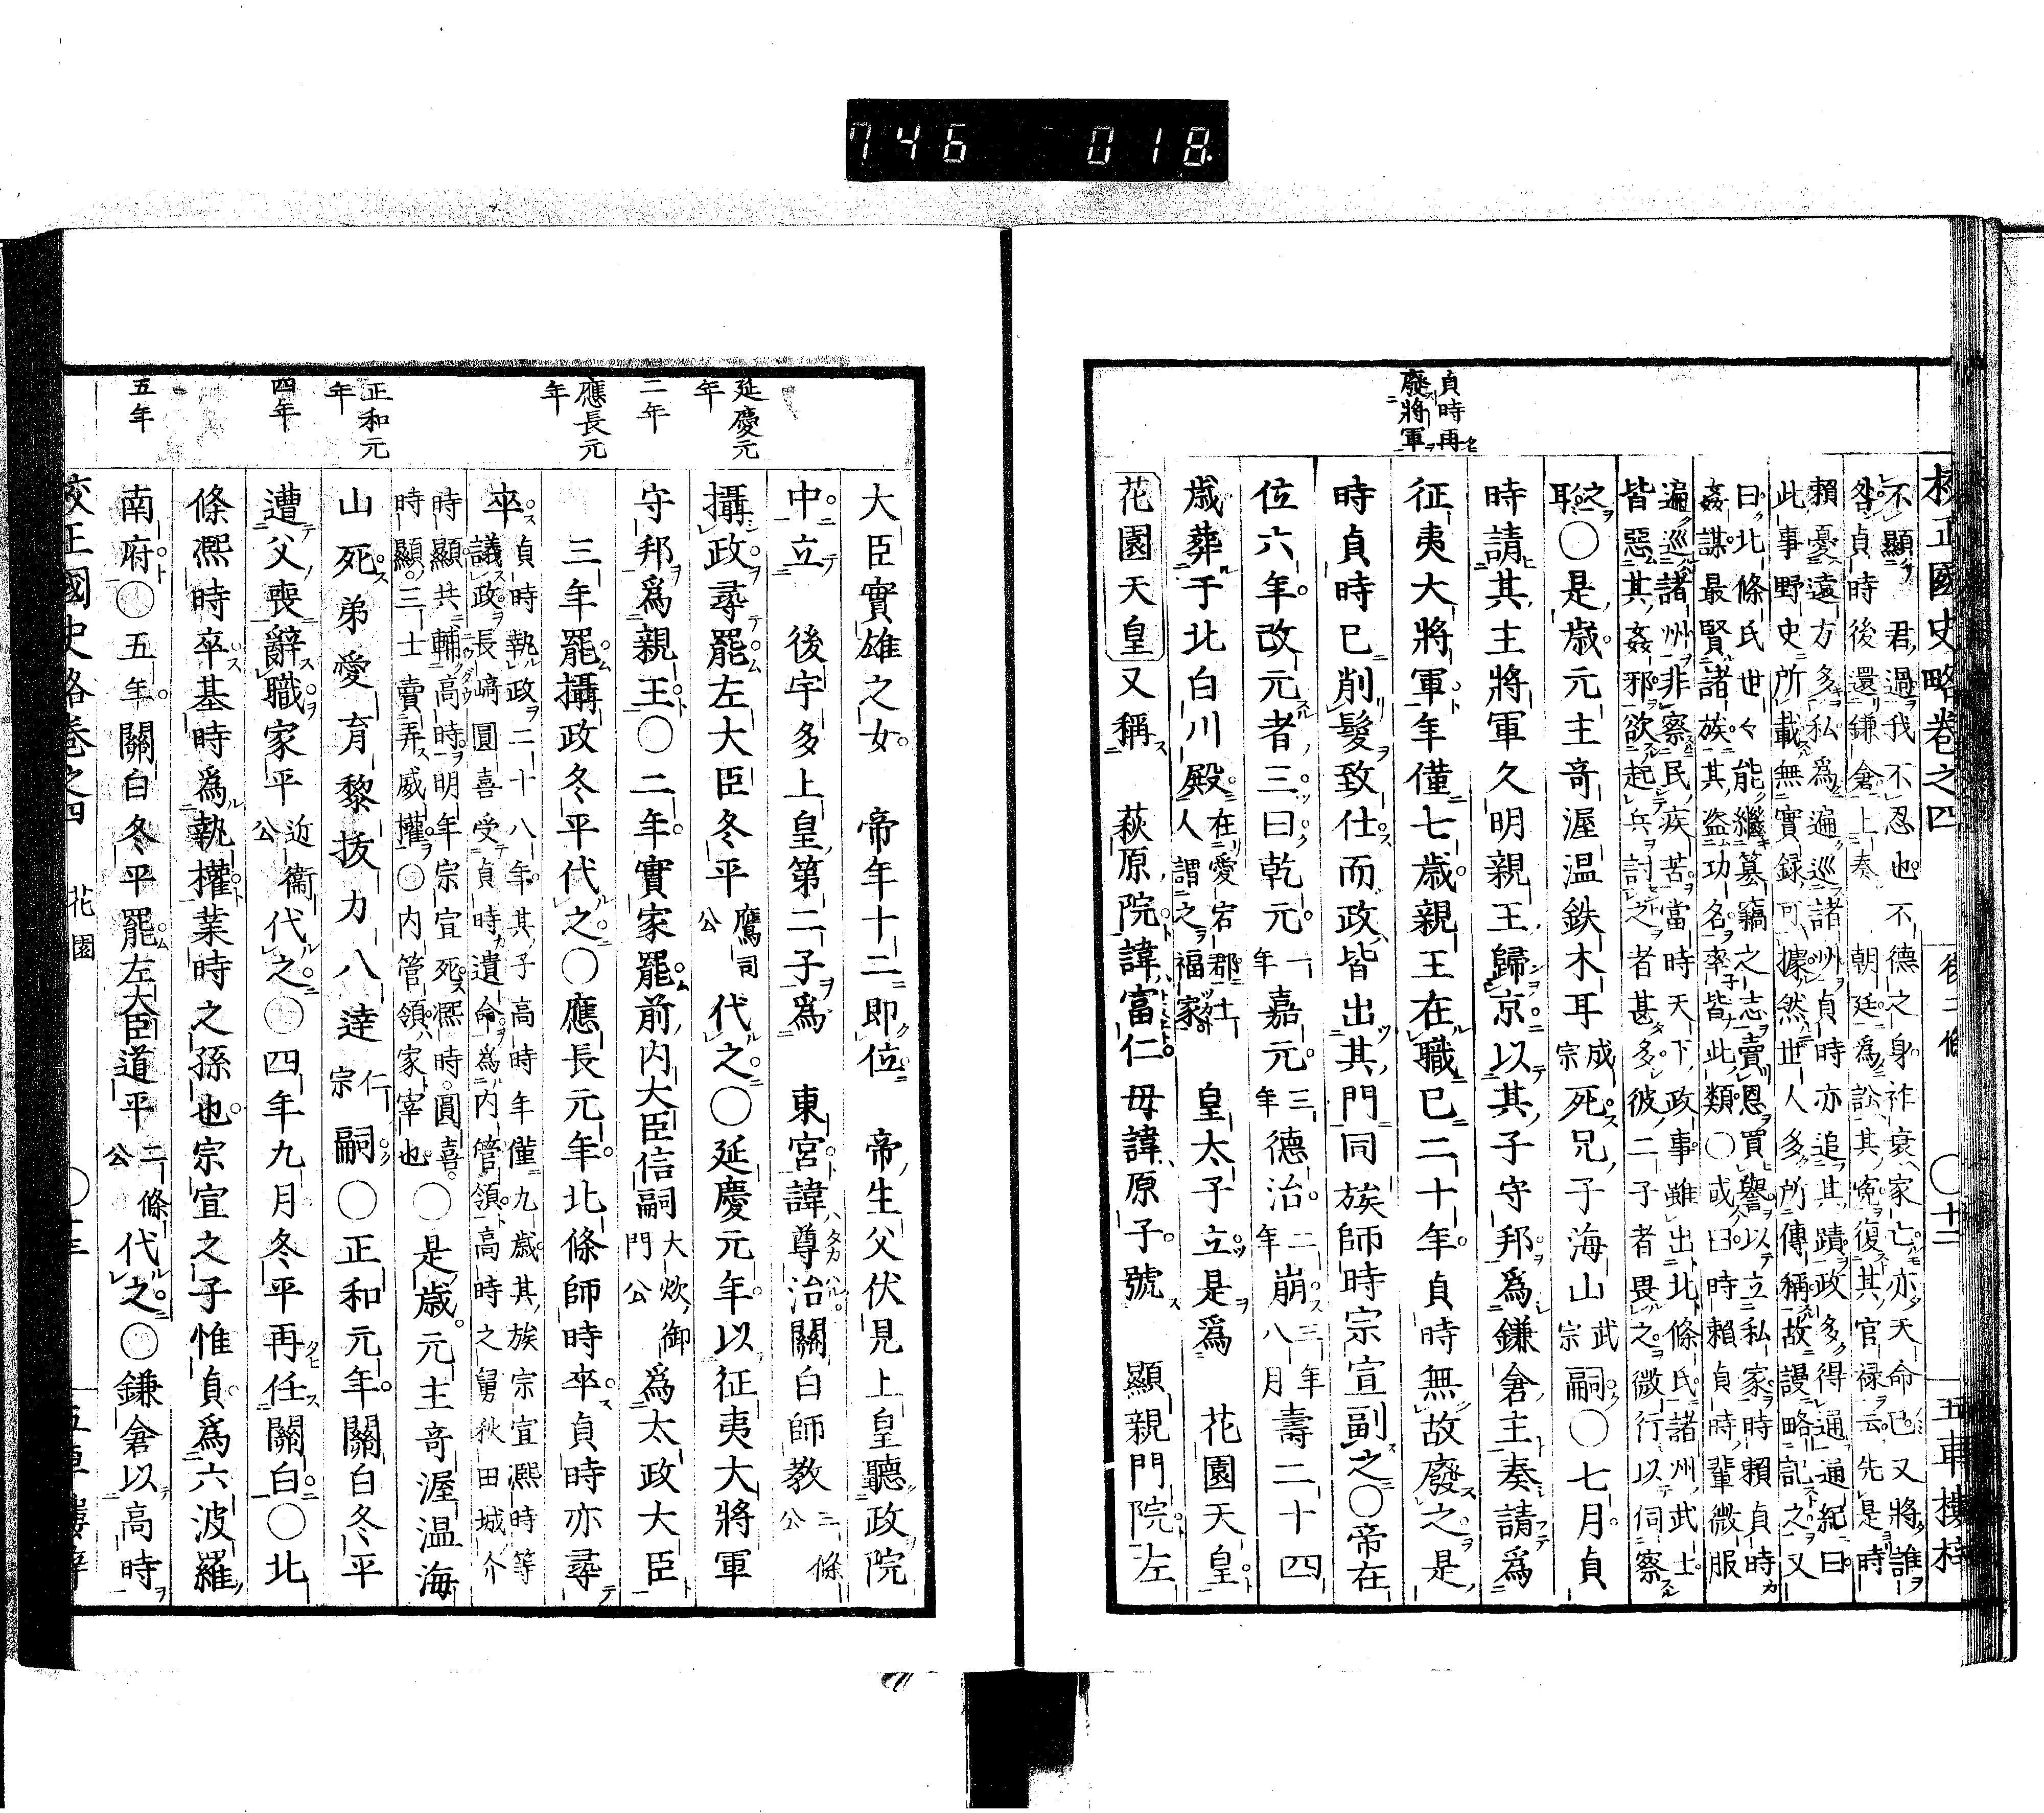 746 018.
校正國史略卷之四 後二條 〇十二 五車樓梓
貞時再
廢將軍
不顯 君過我不忍也不德之身祚衰家亡亦天命已又將誰
咎貞時後還鎌倉上奏 朝廷為訟其寃復其官禄云先是時
賴憂遠方多私為遍巡諸州貞時亦追其蹟政多得通通紀曰
此事野史所載無實録可據然世人多所傳稱故謾略記之又
曰北條氏世々能繼簒竊之志賣恩買譽以立私家時賴貞時
姦謀最賢諸族其盗功名率皆此類〇或曰時賴貞時輩微服
遍巡諸州非察民疾苦當時天下政事雖出北條氏諸州武士
皆惡其姦邪欲起兵討之者甚多彼二子者畏之微行以伺察
之
耳〇是歳元主奇渥温鉄木耳成宗死兄子海山武宗嗣〇七月貞
時請其主將軍久明親王歸京以其子守邦爲鎌倉主奏請爲
征夷大將軍年僅七歳親王在職已二十年貞時無故廢之是
時貞時已削髮致仕而政皆出其門同族師時宗宣副之〇帝在
位六年改元者三曰乾元一年嘉元三年德治二年崩三年八月壽二十四
歳葬于北白川殿在愛宕郡土人謂之福家 皇太子立是爲 花園天皇
花園天皇又稱 萩原院諱富仁母諱原子號 顯親門院左
大臣實雄之女 帝年十二即位 帝生父伏見上皇聽政院
中立 後宇多上皇第二子爲 東宮諱尊治關白師教二條公
延慶元年
攝政尋罷左大臣冬平鷹司公代之〇延慶元年以征夷大將軍
二年
守邦爲親王〇二年實家罷前内大臣信嗣大炊御門公爲太政大臣
應長元年
三年罷攝政冬平代之〇應長元年北條師時卒貞時亦尋
卒貞時執政二十八年其子高時年僅九歳其族宗宣凞時等
議政長崎圓喜受貞時遺命為内管領高時之舅秋田城介
時顯共輔高時明年宗宣死凞時圓喜
時顯三士賣弄威權〇内管領家宰也〇是歳元主奇渥温海
正和元年
山死弟愛育黎拔力八達仁宗嗣〇正和元年關白冬平
四年
遭父喪辭職家平近衞公代之〇四年九月冬平再任關白〇北
條凞時卒基時爲執權業時之孫也宗宣之子惟貞爲六波羅
五年
南府〇五年關白冬平罷左大臣道平二條公代之〇鎌倉以高時
校正國史略卷之四 花園